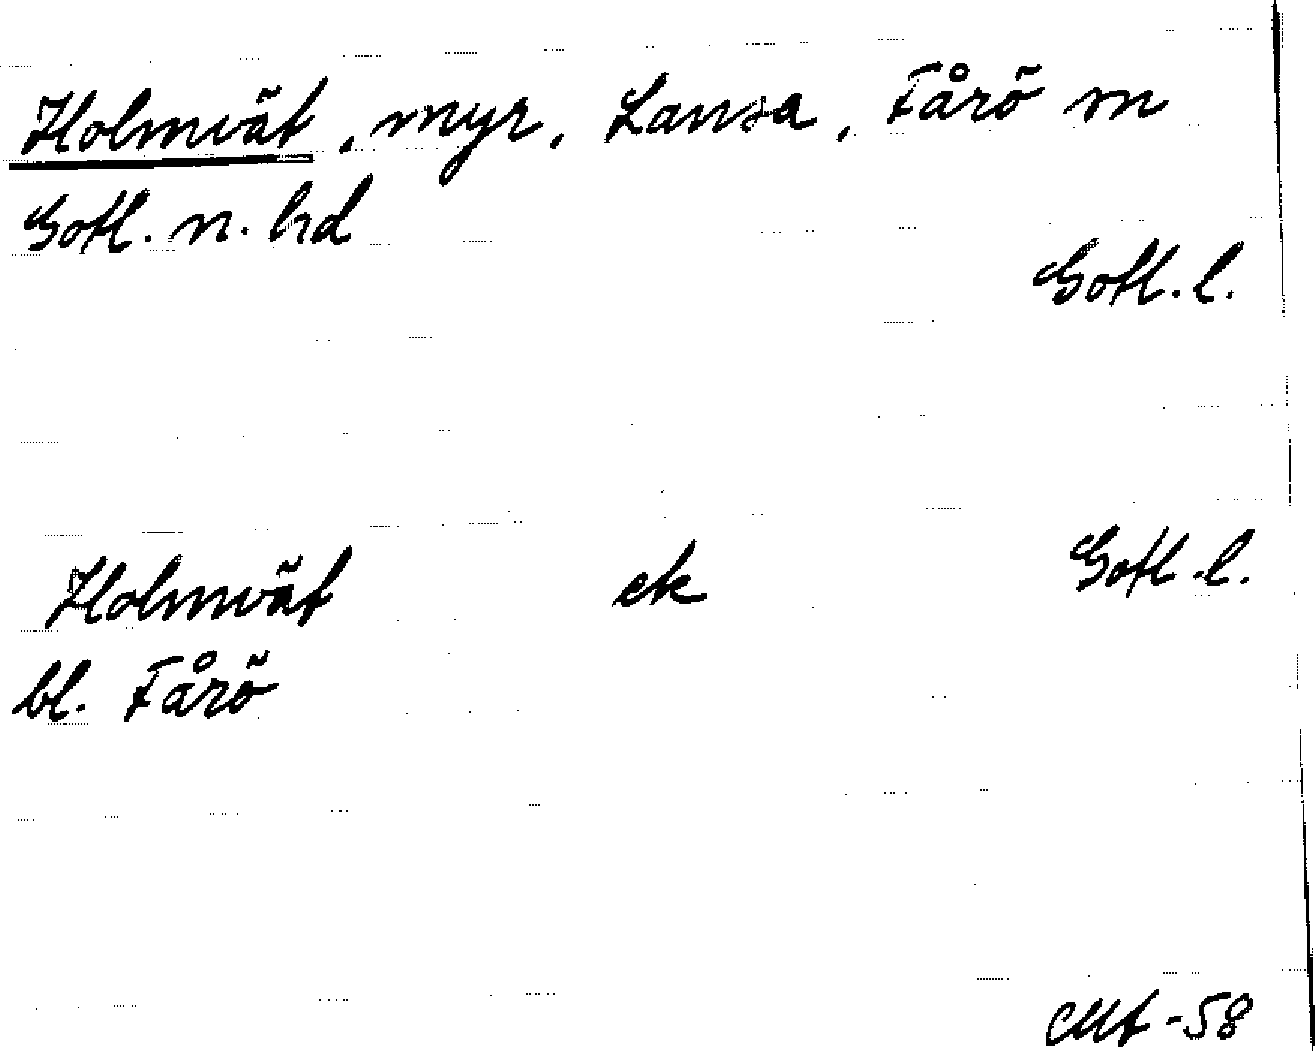 Holmvät, myr, Lansa, Fårö m
Gotl. n. hd
Gotl. l.
Holmvät ek Gotl. l.
bl. Fårö
-58